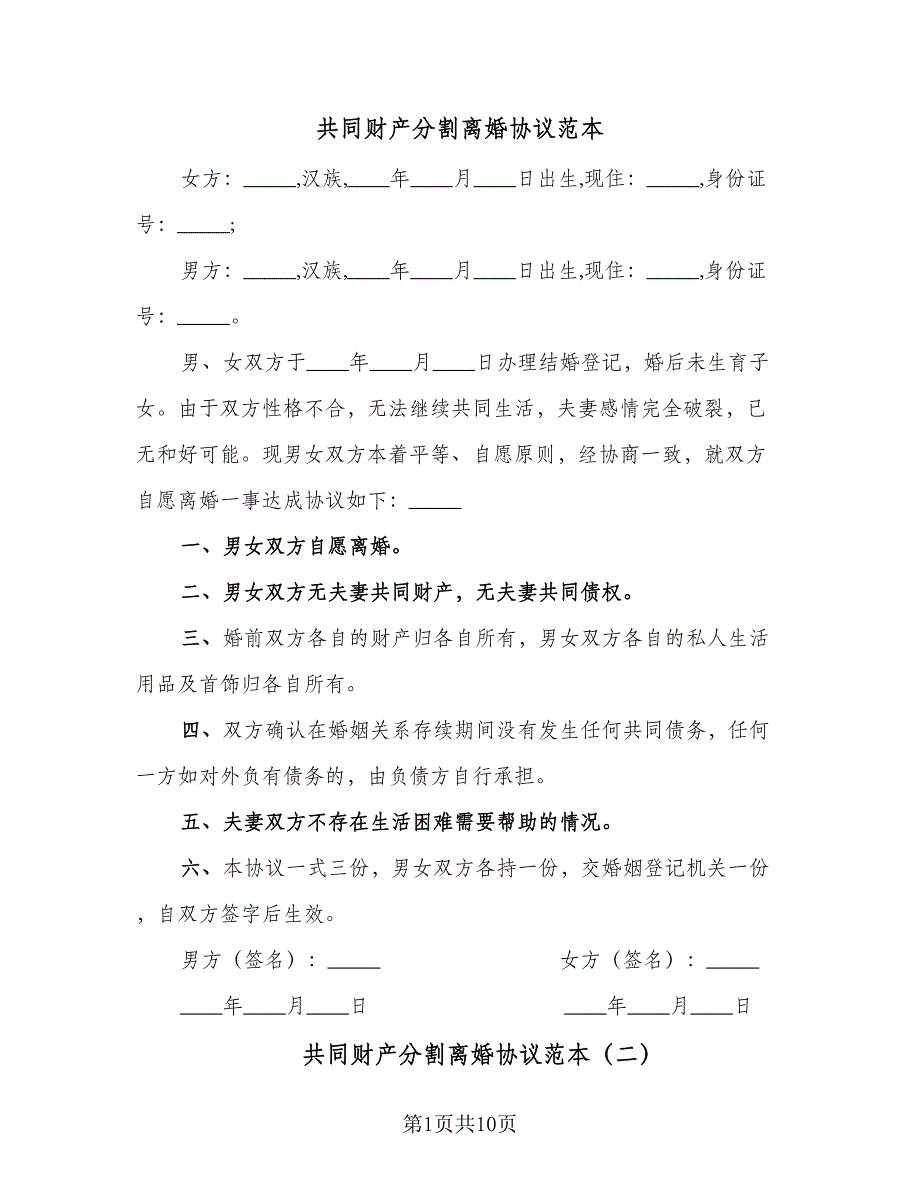 共同财产分割离婚协议范本
女方：_____,汉族,____年____月____日出生,现住：_____,身份证
号：_____;
男方：_____,汉族,____年____月____日出生,现住：_____,身份证
号：_____。
男、女双方于____年____月____日办理结婚登记，婚后未生育子
女。由于双方性格不合，无法继续共同生活，夫妻感情完全破裂，已
无和好可能。现男女双方本着平等、自愿原则，经协商一致，就双方
自愿离婚一事达成协议如下：_____
一、男女双方自愿离婚。
二、男女双方无夫妻共同财产，无夫妻共同债权。
三、婚前双方各自的财产归各自所有，男女双方各自的私人生活
用品及首饰归各自所有。
四、双方确认在婚姻关系存续期间没有发生任何共同债务，任何
一方如对外负有债务的，由负债方自行承担。
五、夫妻双方不存在生活困难需要帮助的情况。
六、本协议一式三份，男女双方各持一份，交婚姻登记机关一份
，自双方签字后生效。
男方（签名）：_____ 女方（签名）：_____
____年____月____日 ____年____月____日
共同财产分割离婚协议范本（二）
第1页共10页